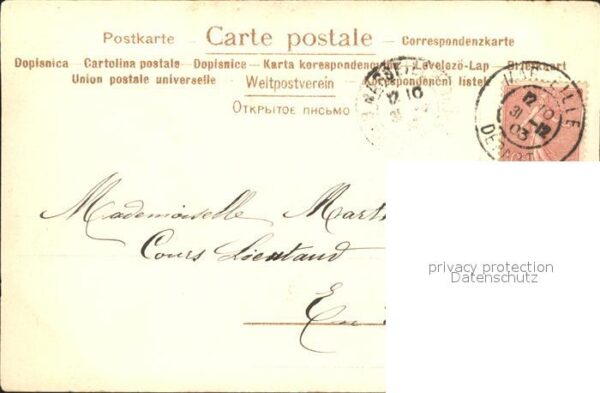 Postkarte – Carte postale – Correspondenzkarte
Dopisnica – Cartolina postale – Dopisnice – Karta korespondencyjna – Levelező-Lap –
Union postale universelle – Weltpostverein – Korespondenční lístek
ОТКРЫТОЕ ПИСЬМО
12 10
MARSEILLE
12 10
31-12
03
DEPART
Mademoiselle Marth
Cours Lieutaud
En
privacy protection
Datenschutz